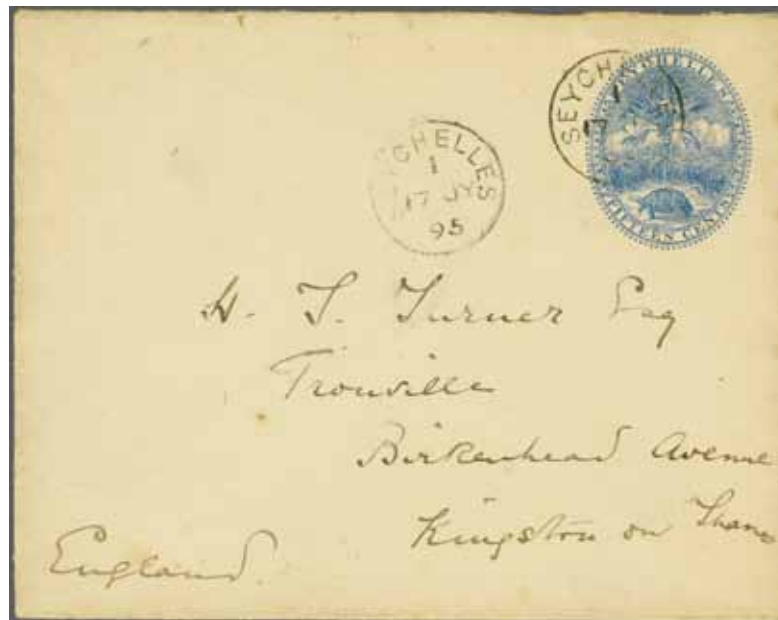 SEYCHELLES
FIFTEEN CENTS
SEYCH
SEYCHELLES
1
17 JY
95
H. T. Turner Esq
Trouville
Birkenhead Avenue
Kingston on Thames
England.